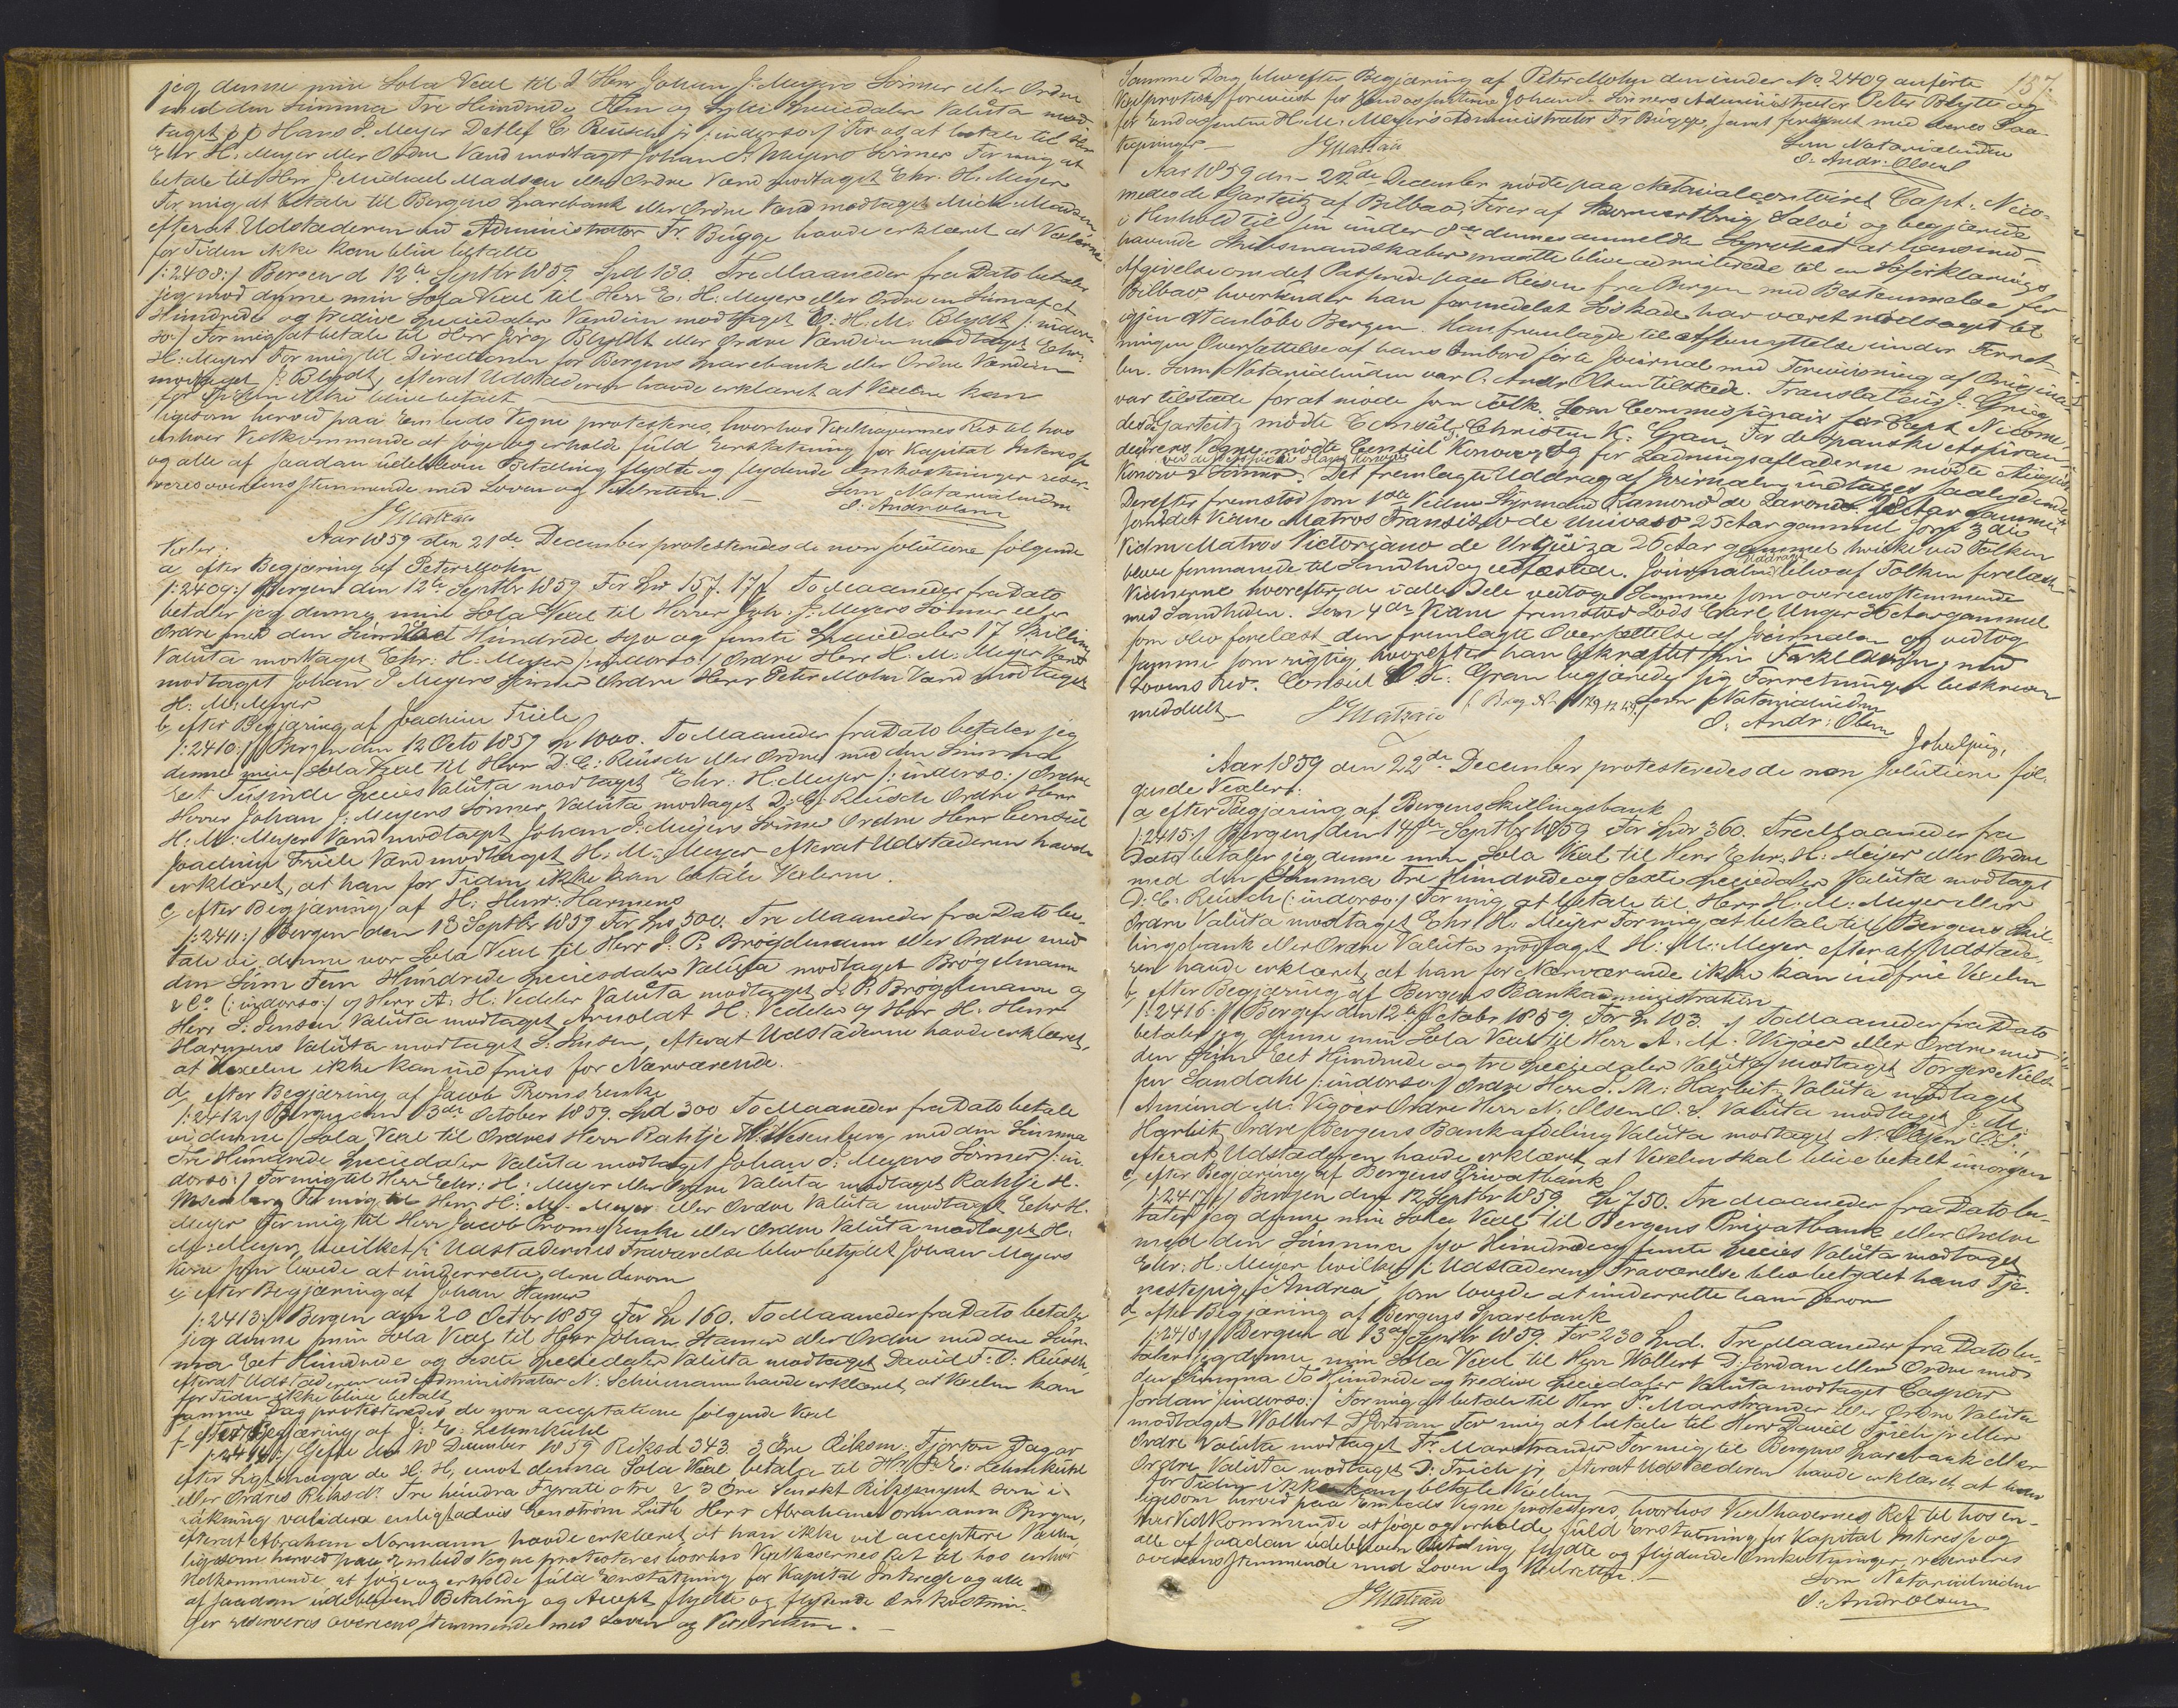 jeg denne min Sola Vexel til Herr Johan J. Meyers Sönner eller Ordre
med den Summa Tre Hundrede Fem og Speciedaler Valuta mod
taget Hans J. Meyer Detlef C. Reusch For mig at betale til Herr
Ehr. H. Meyer eller Ordre Værd modtaget Johan J. Meyers Sönner For mig at
betale til Herr J. Michael Madsen eller Ordre Værd modtaget Ehr. H. Meyer
For mig at betale til Bergens Sparebank eller Ordre Værd modtaget Mich: Madsen,
efterat Udstæderen ved Administrator Fr. Bügge havde erklæret at Vexlerne
for Tiden ikke kan blive betalte
/:2408:/ Bergen d 12te Septbr 1859. Spd 130. Tre Maaneder fra Dato betaler
jeg mod denne min Sola Vexel til Herr E. H. Meyer eller Ordre en Sum af et
Hundrede og tredive Speciedaler Værdien modtaget E: H. M. Blydt /: indor-
so:/ For mig at betale til Herr Jörg Blydt eller Ordre Værdien modtaget Ehr:
H: Meyer For mig til Directionen for Bergens Sparebank eller Ordre Værdien
modtaget J: Blydt, efterat Udstæderen havde erklæret at Vexelen kan
for Tiden ikke blive betalt
ligesom herved paa Embeds Vegne protesteres, hvorhos Vexelhavernes Ret til hos
enhver Vedkommende at söge og erholde fuld Erstatning for Kapital Interesse
og alle af saadan udebleven Betaling flydte og flydende Omkostninger reser-
veres overeensstemmende med Loven og Vexelretten.
Som Notarialvidne
O. Andr Olsen
Aar 1859 den 21de December protesteredes de non solutione fölgende
Vexler:
a, efter Begjæring af Peter Mohn
/:2409:/ Bergen den 12te Septbr 1859 For Spr 157. 17 s. To Maaneder fra Dato
betaler jeg denne min Sola Vexel til Herrer Joh: J. Meyers Sönner eller
Ordre med den Summa Eet Hundrede syv og femti Speciedaler 17 Skilling
Valuta modtaget Ehr: H: Meyer /: indorso:/ Ordre Herr H: M: Meyer Værd
modtaget Johan J Meyers Sönner Ordre Herr Peter Mohn Værd modtaget
H: M: Meyer
b, efter Begjæring af Joachim Friele
/:2410:/ Bergen den 12 Octo 1859 Sp 1000. To Maaneder fra Dato betaler jeg
denne min Sola Vexel til Herr D. C: Reusch eller Ordre med den Summa
Eet Tusinde Species Valuta modtaget Ehr: H. Meyer /: indorso:/ Ordre
Herrer Johan J: Meyers Sönner, Valuta modtaget D: C: Reusch Ordre Herr
H: M: Meyer Værd modtaget Johan J: Meyers Sönner Ordre Herr Consul
Joachim Friele Værd modtaget H: M: Meyer efterat Udstæderen havde
erklæret, at han for Tiden ikke kan betale Vexlerne.
c, efter Begjæring af H: Henr: Harmens
/:2411:/ Bergen den 13 Septbr 1859 For Sps 500. Tre Maaneder fra Dato be-
tale vi denne vor Sola Vexel til Herr J. P. Brögelmann eller Ordre med
den Sum Fem Hundrede Speciesdaler Valuta modtaget Brögelmann
& Co (: indorso:) og Herr A: H: Vedeler Valuta modtaget J: P: Brögelmann og
Herr S. Jensen Valuta modtaget Arnoldt H: Vedeler og Herr H: Henr
Harmens Valuta modtaget S. Jensen, efterat Udstæderne havde erklæret,
at Vexelen ikke kan indfries for Nærværende.
d, efter Begjæring af Jacob Proms Enke
/:2412:/ Bergen den 13de October 1859. Spd 300 To Maaneder fra Dato betale
vi denne Sola Vexel til Ordres Herr Rahtje H. Wesenberg med den Summa
Tre Hundrede Speciedaler Valuta modtaget Johan J: Meyers Sönner /: in-
dorso:/ For mig til Herr Ehr: H: Meyer eller Ordre Valuta modtaget Rahtje H.
Wesenberg For mig til Herr H: M: Meyer eller Ordre Valuta modtaget Ehr H.
Meyer For mig til Herr Jacob Proms Enke eller Ordre Valuta modtaget H.
M: Meyer, hvilket i Udstædernes Fraværelse blev betydet Johan Meyers
som lovede at underrette dem derom
e, efter Begjæring af Johan Stamer
/:2413:/ Bergen den 20 Octbr 1859 For Sp 160. To Maaneder fra Dato betaler
jeg denne min Sola Vexel til Herr Johan Stamer eller Ordre med den Sum-
ma Eet Hundrede og Sexti Speciedaler Valuta modtaget David F: O: Reusch,
efterat Udstæderen ved Administrator N: Schiemann havde erklæret, at Vexelen kan
for Tiden ikke blive betalt
samme Dag protesteredes de non acceptatione fölgende Vexel
f, efter Begjæring af J: E: Lehmkühl
/:2414:/ Gefle den December 1859 Riksd 343 3 Öre Riksm: Fjorton Dagar
efter Sigt behaga de H. H, emot denna Sola Vexel betala til Hr J: E: Lehmkühl
eller Ordres Riksdr Tre hundra Fyratio tre & 3 Öre Svenskt Riksmynt som i
räkning valideras enligt advis Enström Luth Herr Abraham Normann Bergen,
efterat Abraham Normann havde erklæret at han ikke vil acceptere Vexelen
ligesom herved paa Embeds Vegne protesteres hvorhos Vexelhavernes Ret til hos enhver
Vedkommende, at söge og erholde fuld Erstatning for Kapital Interesse og alle
af saadan udebleven Betaling og Accept flydte og flydende Omkostnin-
ger reserveres overeensstemmende med Loven og Vexelretten.
187.
Samme Dag blev efter Begjæring af Peter Mohn den under No 2409 anförte
Vexelprotest foreviist for Endossenterne Johan J. Sönners Administrator Peter Blytt og
for Endossenten H. M: Meyers Administrator Fr Bügge, samt forsynet med deres Paa-
tegninger.
Som Notarialvidne
O. Andr: Olsen
Aar 1859 den 22de December mödte paa Notarialcontoiret Capt. Nico-
medes de Gasteitz af Bilbao, Förer af Brig Salvé og begjærede
i Henhold til sin under dennes anmeldte Söprotest at have med-
havende Skibsmandskaber maatte blive admitterede til en Söforklarings
Afgivelse om det Passerede paa Reisen fra Bergen med Bestemmelse for
Bilbao hvorunder han formedelst Söskade har været nödsaget til
igjen at anlöbe Bergen. Han fremlagde til Afbenyttelse under Forret-
ningen Oversættelse af hans Ombord förte Journal med Forevisning af Origina-
len. Som Notarialvidne var O. Andr Olsen tilstede. Translateur J: Grieg
var tilstede for at møde som Tolk. Som Commissionair for Capt Nicome-
des Gasteitz mödte Consul Christen K: Gran. For de spanske Assuran-
deurers Vegne mödte Consul Konow, og for Ladningsafladerne mödte August
Konow & Sönner ved deres Fuldmægtig Slagen Konow. Det fremlagte Uddrag af Journalen indtages saalydende
Derefter fremstod som 1ste Vidne Styrmand Ramond de Larond Aar gammel
som 2det Vidne Matros Fransisko de Univaso 25 Aar gammel som 3die
Vidne Matros Victoriano de Urquiza 26 Aar gammel hvilke ved Tolken
bleve formanede til Sandhed og edfæstede. Journalens Uddrag blev af Tolken forelæst
Vidnerne hvorefter de i alle Dele vedtoge Samme som overeensstemmende
med Sandheden. Som 4de Vidne fremstod Lods Carl Unger 36 Aar gammel
som blev forelæst den fremlagte Oversættelse af Journalen og vedtog
samme som rigtig, hvorefter han bekræftet sin Forklaring med
Lovens Ed. Consul C. K: Gran begjærede sig Forretningen beskreven
meddeelt.
Som Notarialvidne
O: Andr: Olsen
Aar 1859 den 22de December protesteredes de non solutione föl-
gende Vexler:
a efter Begjæring af Bergens Skillingsbank
/:2415:/ Bergen den 14de Septbr 1859 For Spdr 360. Tre Maaneder fra
Dato betaler jeg denne min Sola Vexel til Herr Ehr: H: Meijer eller Ordre
med den Summa Tre Hundrede og Sexti Speciedaler Valuta modtaget
D: C: Reusch (: indorso:) For mig at betale til Herr H: M: Meyer eller
Ordre Valuta modtaget Ehr: H: Meijer For mig at betale til Bergens Skil-
lingsbank eller Ordre Valuta modtaget H: M: Meyer efterat Udstæde-
ren havde erklæret at han for Nærværende ikke kan indfrie Vexelen
b, efter Begjæring af Bergens Bankadministration
/:2416:/ Bergen den 12te Octobr 1859 For Sp 103. To Maaneder fra Dato
betaler jeg denne min Sola Vexel til Herr A. M. Vigöer eller Ordre med
den Sum Eet Hundrede og tre Speciedaler Valuta modtaget Torger Niel-
sen Sandahl /: indorso:/ Ordre Herr J. M: Harbitz Valuta modtaget
Amund M: Vigöer Ordre Herr N: Olsen O. S. Valuta modtaget J: M:
Harbitz Ordre Bergens Bankafdeling Valuta modtaget N: Olsen O. S.,
efterat Udstæderen havde erklæret at Vexelen skal blive betalt imorgen
c, efter Begjæring af Bergens Privatbank
/:2417:/ Bergen den 12 Septbr 1859 Sp 750. Tre Maaneder fra Dato be-
taler jeg denne min Sola Vexel til Bergens Privatbank eller Ordre
med den Summa syv Hundrede og femti Species Valuta modtaget
Ehr: H: Meijer hvilket i Udstæderens Fraværelse blev betydet hans Tje-
nestepige Andrea som lovede at underrette ham derom
d efter Begjæring af Bergens Sparebank
/:2418:/ Bergen d 13de Septbr 1859. For 230 Spd. Tre Maaneder fra Dato be-
taler jeg denne min Sola Vexel til Herr Wollert D. Jordan eller Ordre med
den Summa To Hundrede og tredive Speciedaler Valuta modtaget Caspar
Jordan /: indorso:/ For mig at betale til Herr Fr. Marstrander eller Ordre Valuta
modtaget Wollert D Jordan For mig at betale til Herr David Friele jr eller
Ordre Valuta modtaget Fr. Marstrander For mig til Bergens Sparebank eller
Ordre Valuta modtaget D: Friele jr, efterat Udstæderen havde erklæret at han
for Tiden ikke kan betale Vexelen
ligesom herved paa Embeds Vegne protesteres, hvorhos Vexelhavernes Ret til hos en-
hver Vedkommende at söge og erholde fuld Erstatning for Kapital Interesse og
alle af saadan udebleven Betaling flydte og flydende Omkostninger, reserveres
overeensstemmende med Loven og Vexelretten.
Som Notarialvidne
O: Andr Olsen